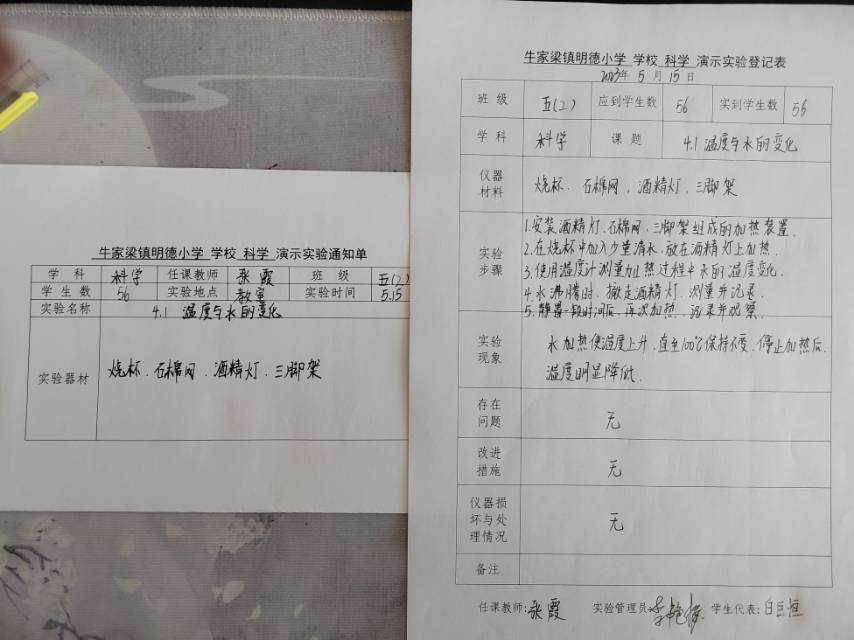 牛家梁镇明德小学 学校 科学 演示实验通知单
学 科 科学 任课教师 张霞 班 级 五(2)
学 生 数 56 实验地点 教室 实验时间 5.15
实验名称 4.1 温度与水的变化
实验器材 烧杯、石棉网、酒精灯、三脚架
牛家梁镇明德小学 学校 科学 演示实验登记表
2023年 5 月 15 日
班 级 五(2) 应到学生数 56 实到学生数 56
学 科 科学 课 题 4.1 温度与水的变化
仪器
材料
烧杯、石棉网、酒精灯、三脚架
实验
步骤
1.安装酒精灯、石棉网、三脚架组成的加热装置.
2.在烧杯中加入少量清水,放在酒精灯上加热.
3.使用温度计测量加热过程中水的温度变化.
4.水沸腾时,撤走酒精灯,测量并记录.
5.静置一段时间后,再次加热,记录并观察.
实验
现象
水加热使温度上升,直至100℃保持不变,停止加热后,
温度明显降低.
存在
问题
无
改进
措施
无
仪器损
坏与处
理情况
无
备注
任课教师:张霞 实验管理员: 学生代表:白巨恒